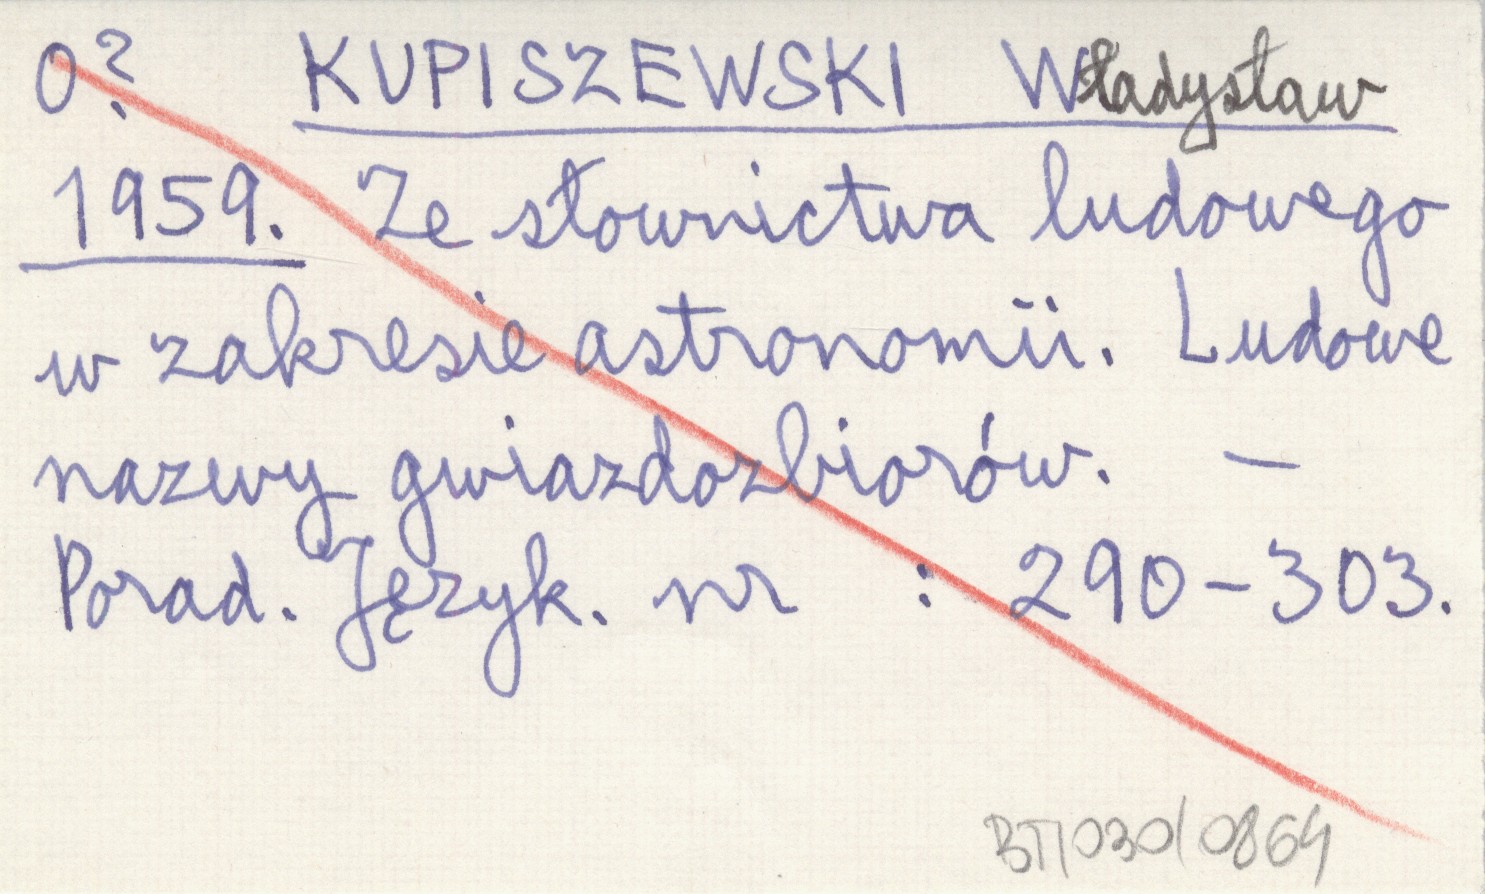 0? KUPISZEWSKI Władysław
1959. Ze słownictwa ludowego
w zakresie astronomii. Ludowe
nazwy gwiazdozbiorów. –
Porad. Język. nr : 290-303.
BT/030/0864